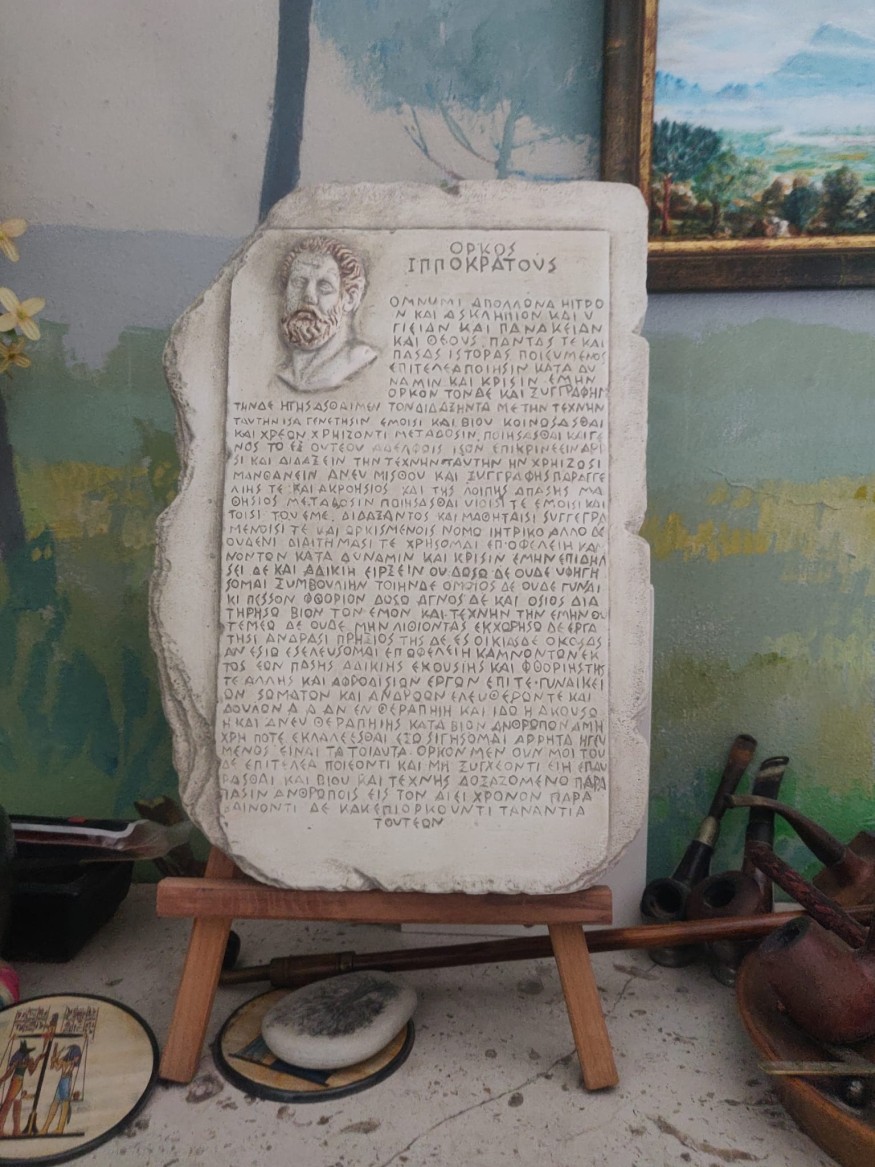 ΟΡΚΟΣ
ΙΠΠΟΚΡΑΤΟΥΣ
ΟΜΝΥΜΙ ΑΠΟΛΛΩΝΑ ΗΙΤΡΟ
Ν ΚΑΙ ΑΣΚΛΗΠΙΟΝ ΚΑΙ Υ
ΓΙΕΙΑΝ ΚΑΙ ΠΑΝΑΚΕΙΑΝ
ΚΑΙ ΘΕΟΥΣ ΠΑΝΤΑΣ ΤΕ ΚΑΙ
ΠΑΣΑΣ ΙΣΤΟΡΑΣ ΠΟΙΕΥΜΕΝΟΣ
ΕΠΙΤΕΛΕΑ ΠΟΙΗΣΙΝ ΚΑΤΑ ΔΥ
ΝΑΜΙΝ ΚΑΙ ΚΡΙΣΙΝ ΕΜΗΝ
ΟΡΚΟΝ ΤΟΝΔΕ ΚΑΙ ΞΥΓΓΡΑΦΗΝ
ΤΗΝΔΕ ΗΓΗΣΑΣΘΑΙ ΜΕΝ ΤΟΝ ΔΙΔΑΞΗΝΤΑ ΜΕ ΤΗΝ ΤΕΧΝΗΝ
ΤΑΥΤΗΝ ΙΣΑ ΓΕΝΕΤΗΣΙΝ ΕΜΟΙΣΙ ΚΑΙ ΒΙΟΥ ΚΟΙΝΩΣΑΣΘΑΙ
ΚΑΙ ΧΡΕΩΝ ΧΡΗΙΖΟΝΤΙ ΜΕΤΑΔΟΣΙΝ ΠΟΙΗΣΑΣΘΑΙ ΚΑΙ ΓΕ
ΝΟΣ ΤΟ ΕΞ ΟΥΤΕΟΥ ΑΔΕΛΦΟΙΣ ΙΣΟΝ ΕΠΙΚΡΙΝΕΕΙΝ ΑΡΙ
ΣΙ ΚΑΙ ΔΙΔΑΞΕΙΝ ΤΗΝ ΤΕΧΝΗΝ ΤΑΥΤΗΝ ΗΝ ΧΡΗΙΖΟΣΙ
ΜΑΝΘΑΝΕΙΝ ΑΝΕΥ ΜΙΣΘΟΥ ΚΑΙ ΞΥΓΓΡΑΦΗΣ ΠΑΡΑΓΓΕ
ΛΙΗΣ ΤΕ ΚΑΙ ΑΚΡΟΗΣΙΟΣ ΚΑΙ ΤΗΣ ΛΟΙΠΗΣ ΑΠΑΣΗΣ ΜΑ
ΘΗΣΙΟΣ ΜΕΤΑΔΟΣΙΝ ΠΟΙΗΣΑΣΘΑΙ ΥΙΟΙΣΙ ΤΕ ΕΜΟΙΣΙ ΚΑΙ
ΤΟΙΣΙ ΤΟΥ ΕΜΕ ΔΙΔΑΞΑΝΤΟΣ ΚΑΙ ΜΑΘΗΤΑΙΣΙ ΣΥΓΓΕΓΡΑ
ΜΕΝΟΙΣΙ ΤΕ ΚΑΙ ΩΡΚΙΣΜΕΝΟΙΣ ΝΟΜΟ ΙΗΤΡΙΚΟ ΑΛΛΟ ΔΕ
ΟΥΔΕΝΙ ΔΙΑΙΤΗΜΑΣΙ ΤΕ ΧΡΗΣΟΜΑΙ ΕΠ ΟΦΕΛΕΙΗ ΚΑΜ
ΝΟΝΤΩΝ ΚΑΤΑ ΔΥΝΑΜΙΝ ΚΑΙ ΚΡΙΣΙΝ ΕΜΗΝ ΕΠΙ ΔΗΛ
ΣΕΙ ΔΕ ΚΑΙ ΑΔΙΚΙΗ ΕΙΡΞΕΙΝ ΟΥ ΔΩΣΩ ΔΕ ΟΥΔΕ ΥΦΗΓΗ
ΣΟΜΑΙ ΞΥΜΒΟΥΛΙΗΝ ΤΟΙΗΝΔΕ ΟΜΟΙΟΣ ΔΕ ΟΥΔΕ ΓΥΝΑΙ
ΚΙ ΠΕΣΣΟΝ ΦΘΟΡΙΟΝ ΔΩΣΩ ΑΓΝΟΣ ΔΕ ΚΑΙ ΟΣΙΟΣ ΔΙΑ
ΤΗΡΗΣΩ ΒΙΟΝ ΤΟΝ ΕΜΟΝ ΚΑΙ ΤΕΧΝΗΝ ΤΗΝ ΕΜΗΝ ΟΥ
ΤΕΜΕΩ ΔΕ ΟΥΔΕ ΜΗΝ ΛΙΘΙΟΝΤΑΣ ΕΚΧΩΡΗΣΩ ΔΕ ΕΡΓΑ
ΤΗΣΙ ΑΝΔΡΑΣΙ ΠΡΗΞΙΟΣ ΤΗΣΔΕ ΕΣ ΟΙΚΙΑΣ ΔΕ ΟΚΟΣΑΣ
ΑΝ ΕΣΙΩ ΕΣΕΛΕΥΣΟΜΑΙ ΕΠ ΩΦΕΛΕΙΗ ΚΑΜΝΟΝΤΩΝ ΕΚ
ΤΟΣ ΕΩΝ ΠΑΣΗΣ ΑΔΙΚΙΗΣ ΕΚΟΥΣΙΗΣ ΚΑΙ ΦΘΟΡΙΗΣ ΤΗΣ
ΤΕ ΑΛΛΗΣ ΚΑΙ ΑΦΡΟΔΙΣΙΩΝ ΕΡΓΩΝ ΕΠΙ ΤΕ ΓΥΝΑΙΚΕΙ
ΩΝ ΣΩΜΑΤΩΝ ΚΑΙ ΑΝΔΡΩΩΝ ΕΛΕΥΘΕΡΟΝ ΤΕ ΚΑΙ
ΔΟΥΛΟΝ Α Δ ΑΝ ΕΝ ΘΕΡΑΠΗΙΗ ΚΑΙ ΙΔΩ Η ΑΚΟΥΣΩ
Η ΚΑΙ ΑΝΕΥ ΘΕΡΑΠΗΙΗΣ ΚΑΤΑ ΒΙΟΝ ΑΝΘΡΩΠΩΝ Α ΜΗ
ΧΡΗ ΠΟΤΕ ΕΚΛΑΛΕΕΣΘΑΙ ΕΞΩ ΣΙΓΗΣΟΜΑΙ ΑΡΡΗΤΑ ΗΓΕΥ
ΜΕΝΟΣ ΕΙΝΑΙ ΤΑ ΤΟΙΑΥΤΑ ΟΡΚΟΝ ΜΕΝ ΟΥΝ ΜΟΙ ΤΟΥ
ΔΕ ΕΠΙΤΕΛΕΑ ΠΟΙΕΟΝΤΙ ΚΑΙ ΜΗ ΞΥΓΧΕΟΝΤΙ ΕΙΗ ΕΠΑΥ
ΡΑΣΘΑΙ ΚΑΙ ΒΙΟΥ ΚΑΙ ΤΕΧΝΗΣ ΔΟΞΑΖΟΜΕΝΟ ΠΑΡΑ
ΠΑΣΙΝ ΑΝΘΡΟΠΟΙΣ ΕΙΣ ΤΟΝ ΑΙΕΙ ΧΡΟΝΟΝ ΠΑΡΑ
ΒΑΙΝΟΝΤΙ ΔΕ ΚΑΚ ΕΠΙΟΡΚΟΥΝΤΙ ΤΑΝΑΝΤΙΑ
ΤΟΥΤΕΩΝ